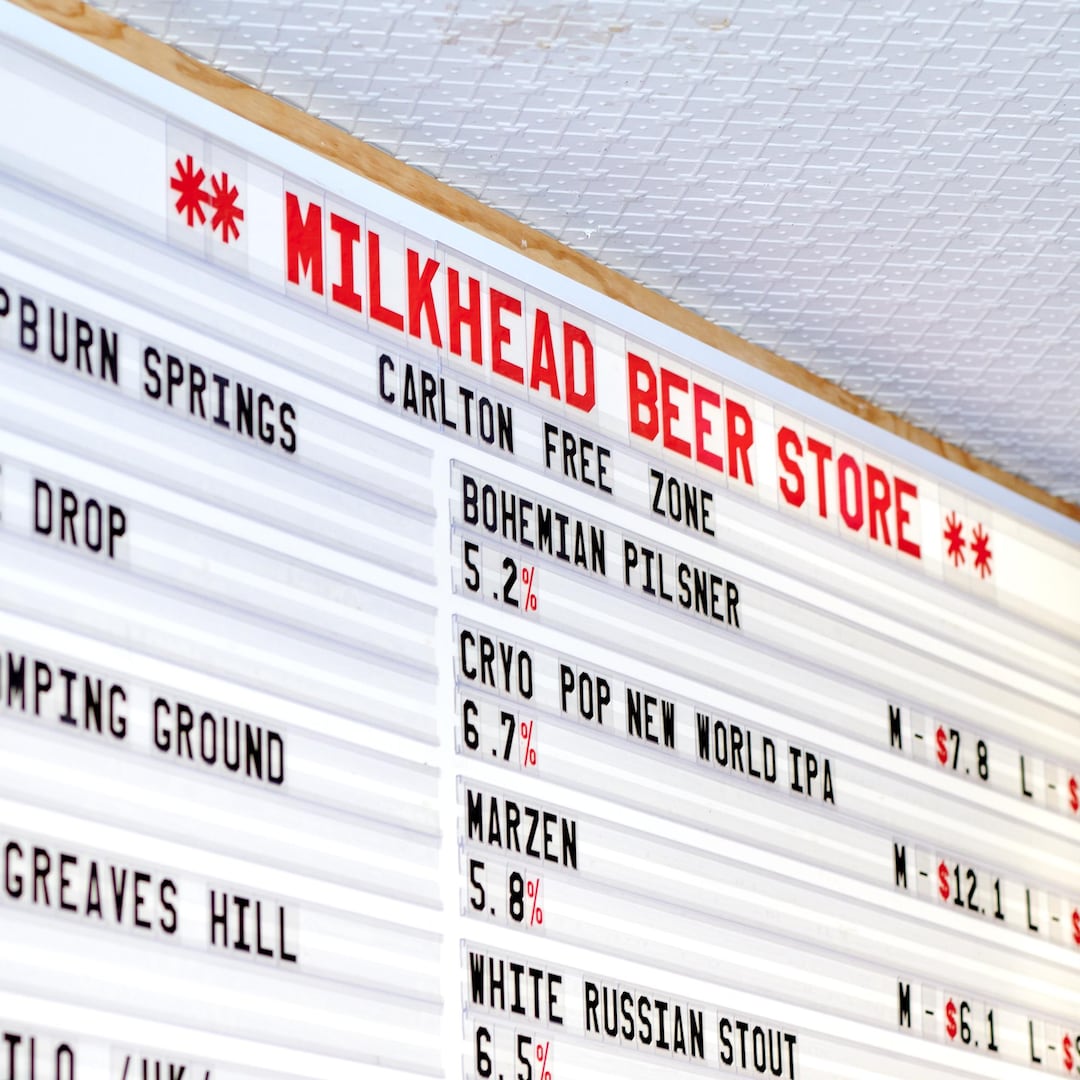 ** MILKHEAD BEER STORE **
CARLTON FREE ZONE
PBURN SPRINGS
BOHEMIAN PILSNER
5.2%
M - $7.8 L - $
DROP
CRYO POP NEW WORLD IPA
6.7%
M - $12.1 L - $
OMPING GROUND
MARZEN
5.8%
M - $6.1 L - $
GREAVES HILL
WHITE RUSSIAN STOUT
6.5%